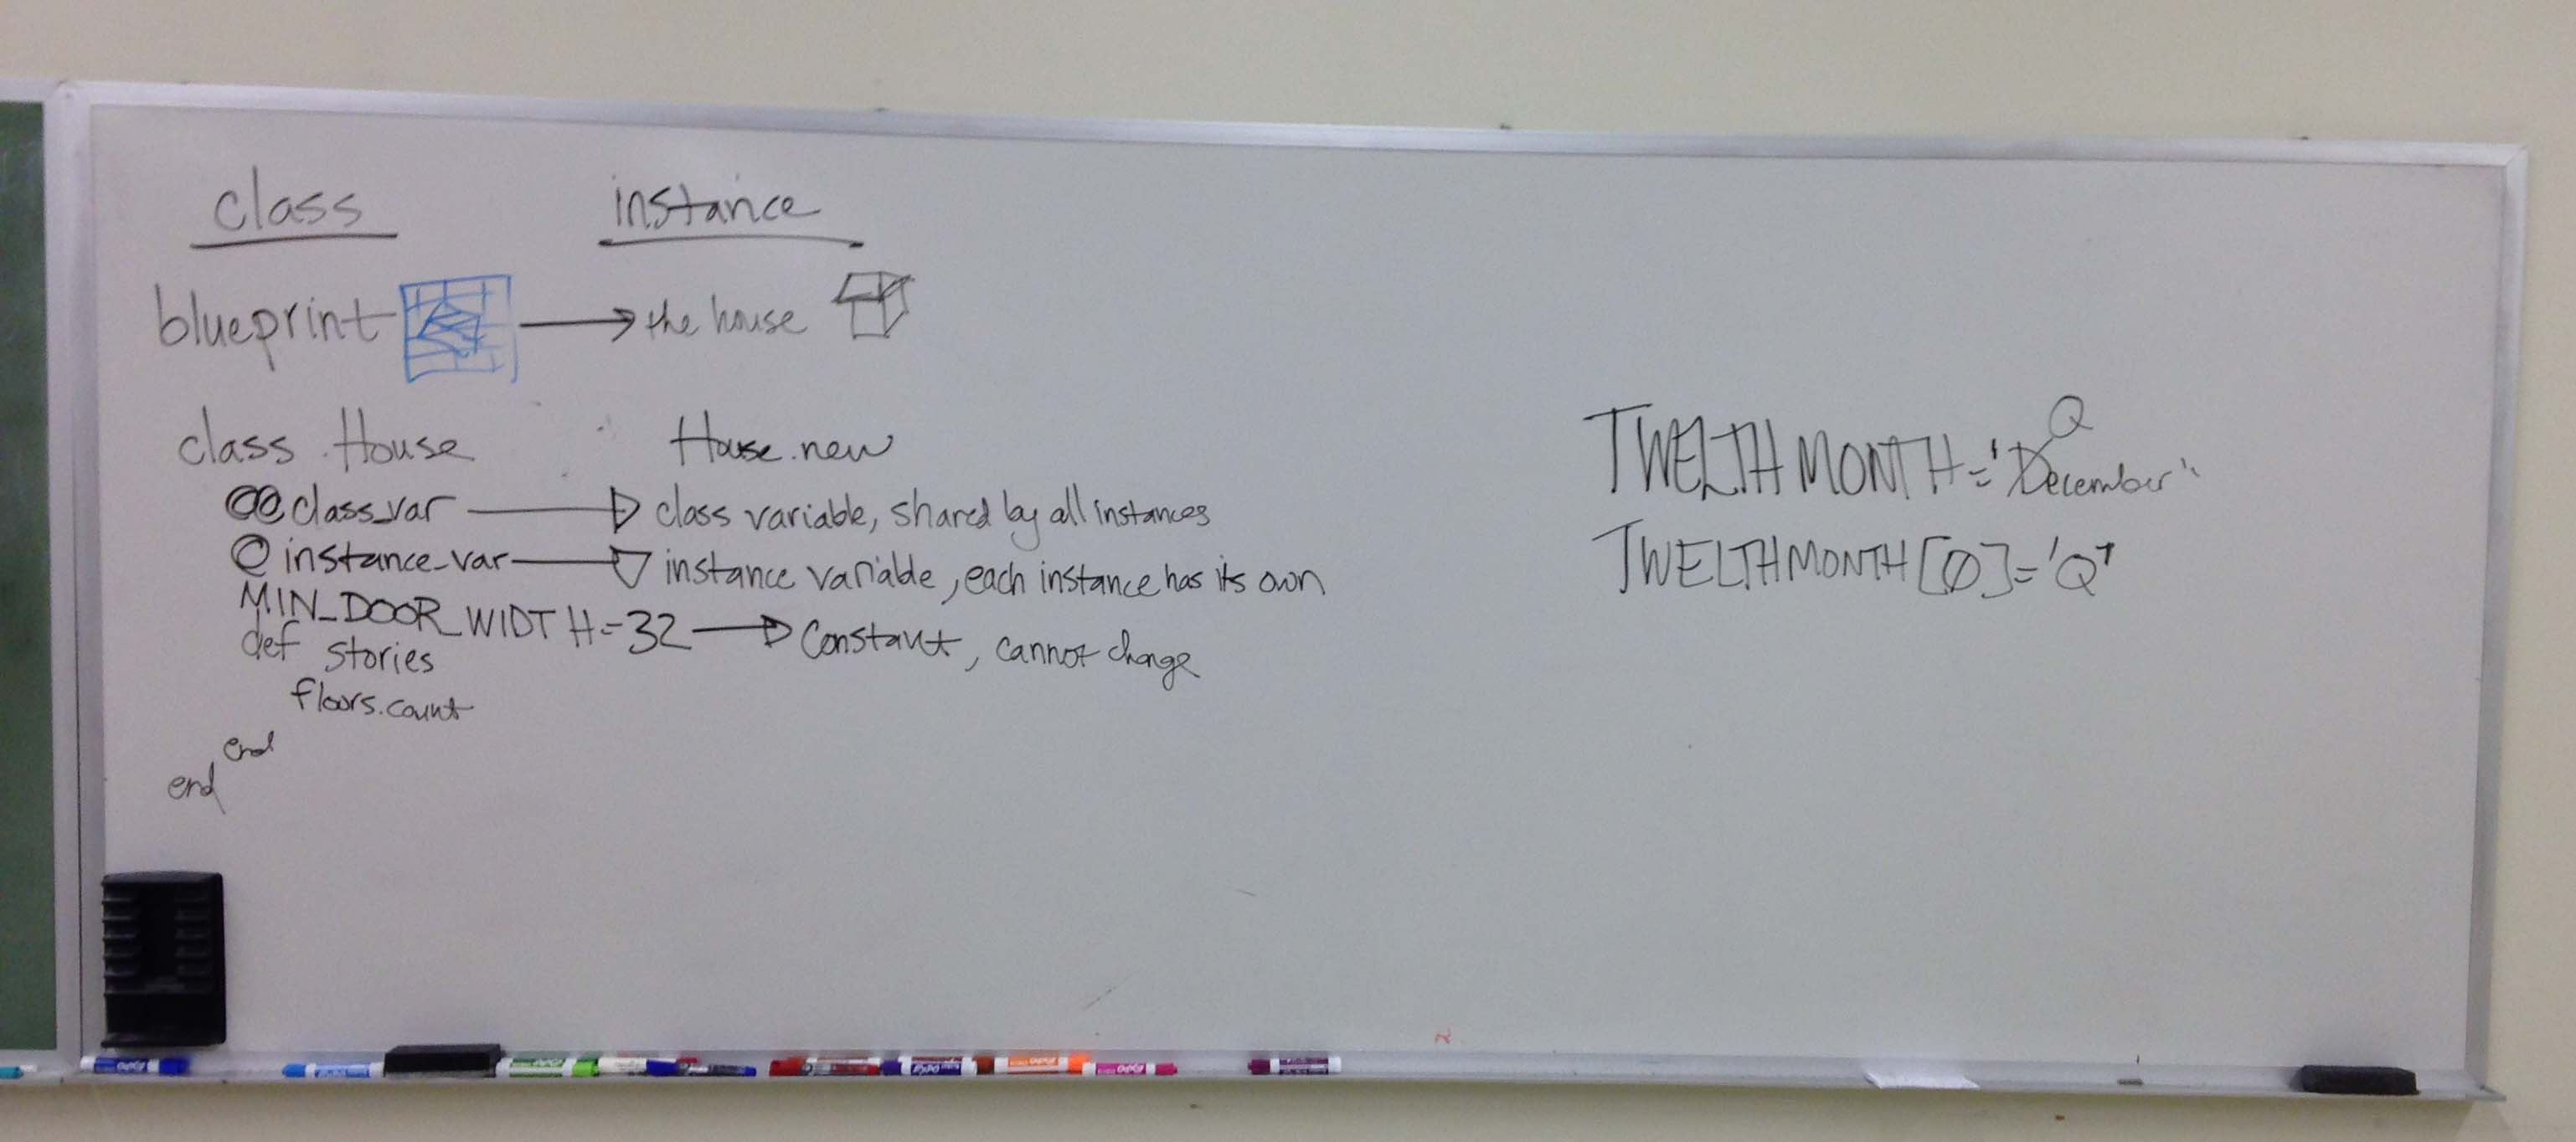 class instance
blueprint the house
class House House.new
@@class_var class variable, shared by all instances
@instance_var instance variable, each instance has its own
MIN_DOOR_WIDTH=32 Constant, cannot change
def stories
floors.count
end
end
Q
TWELTHMONTH='December"
TWELTHMONTH[0]='Q'